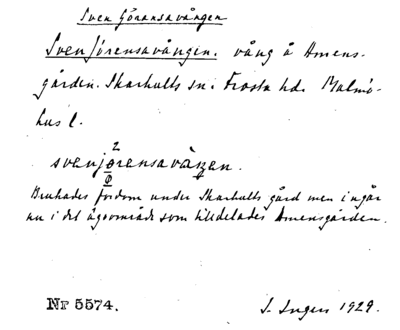 Sven Göransavången
Svenjörensavången. vång å Amens-
gården. Skarhults sn. Frosta hd. Malmö-
hus l.
2
svenjørensavåŋen.
Brukades fordom under Skarhults gård men ingår
nu i det ägoområde som tilldelades Amensgården.
Nr 5574.
S. Ingers 1929.